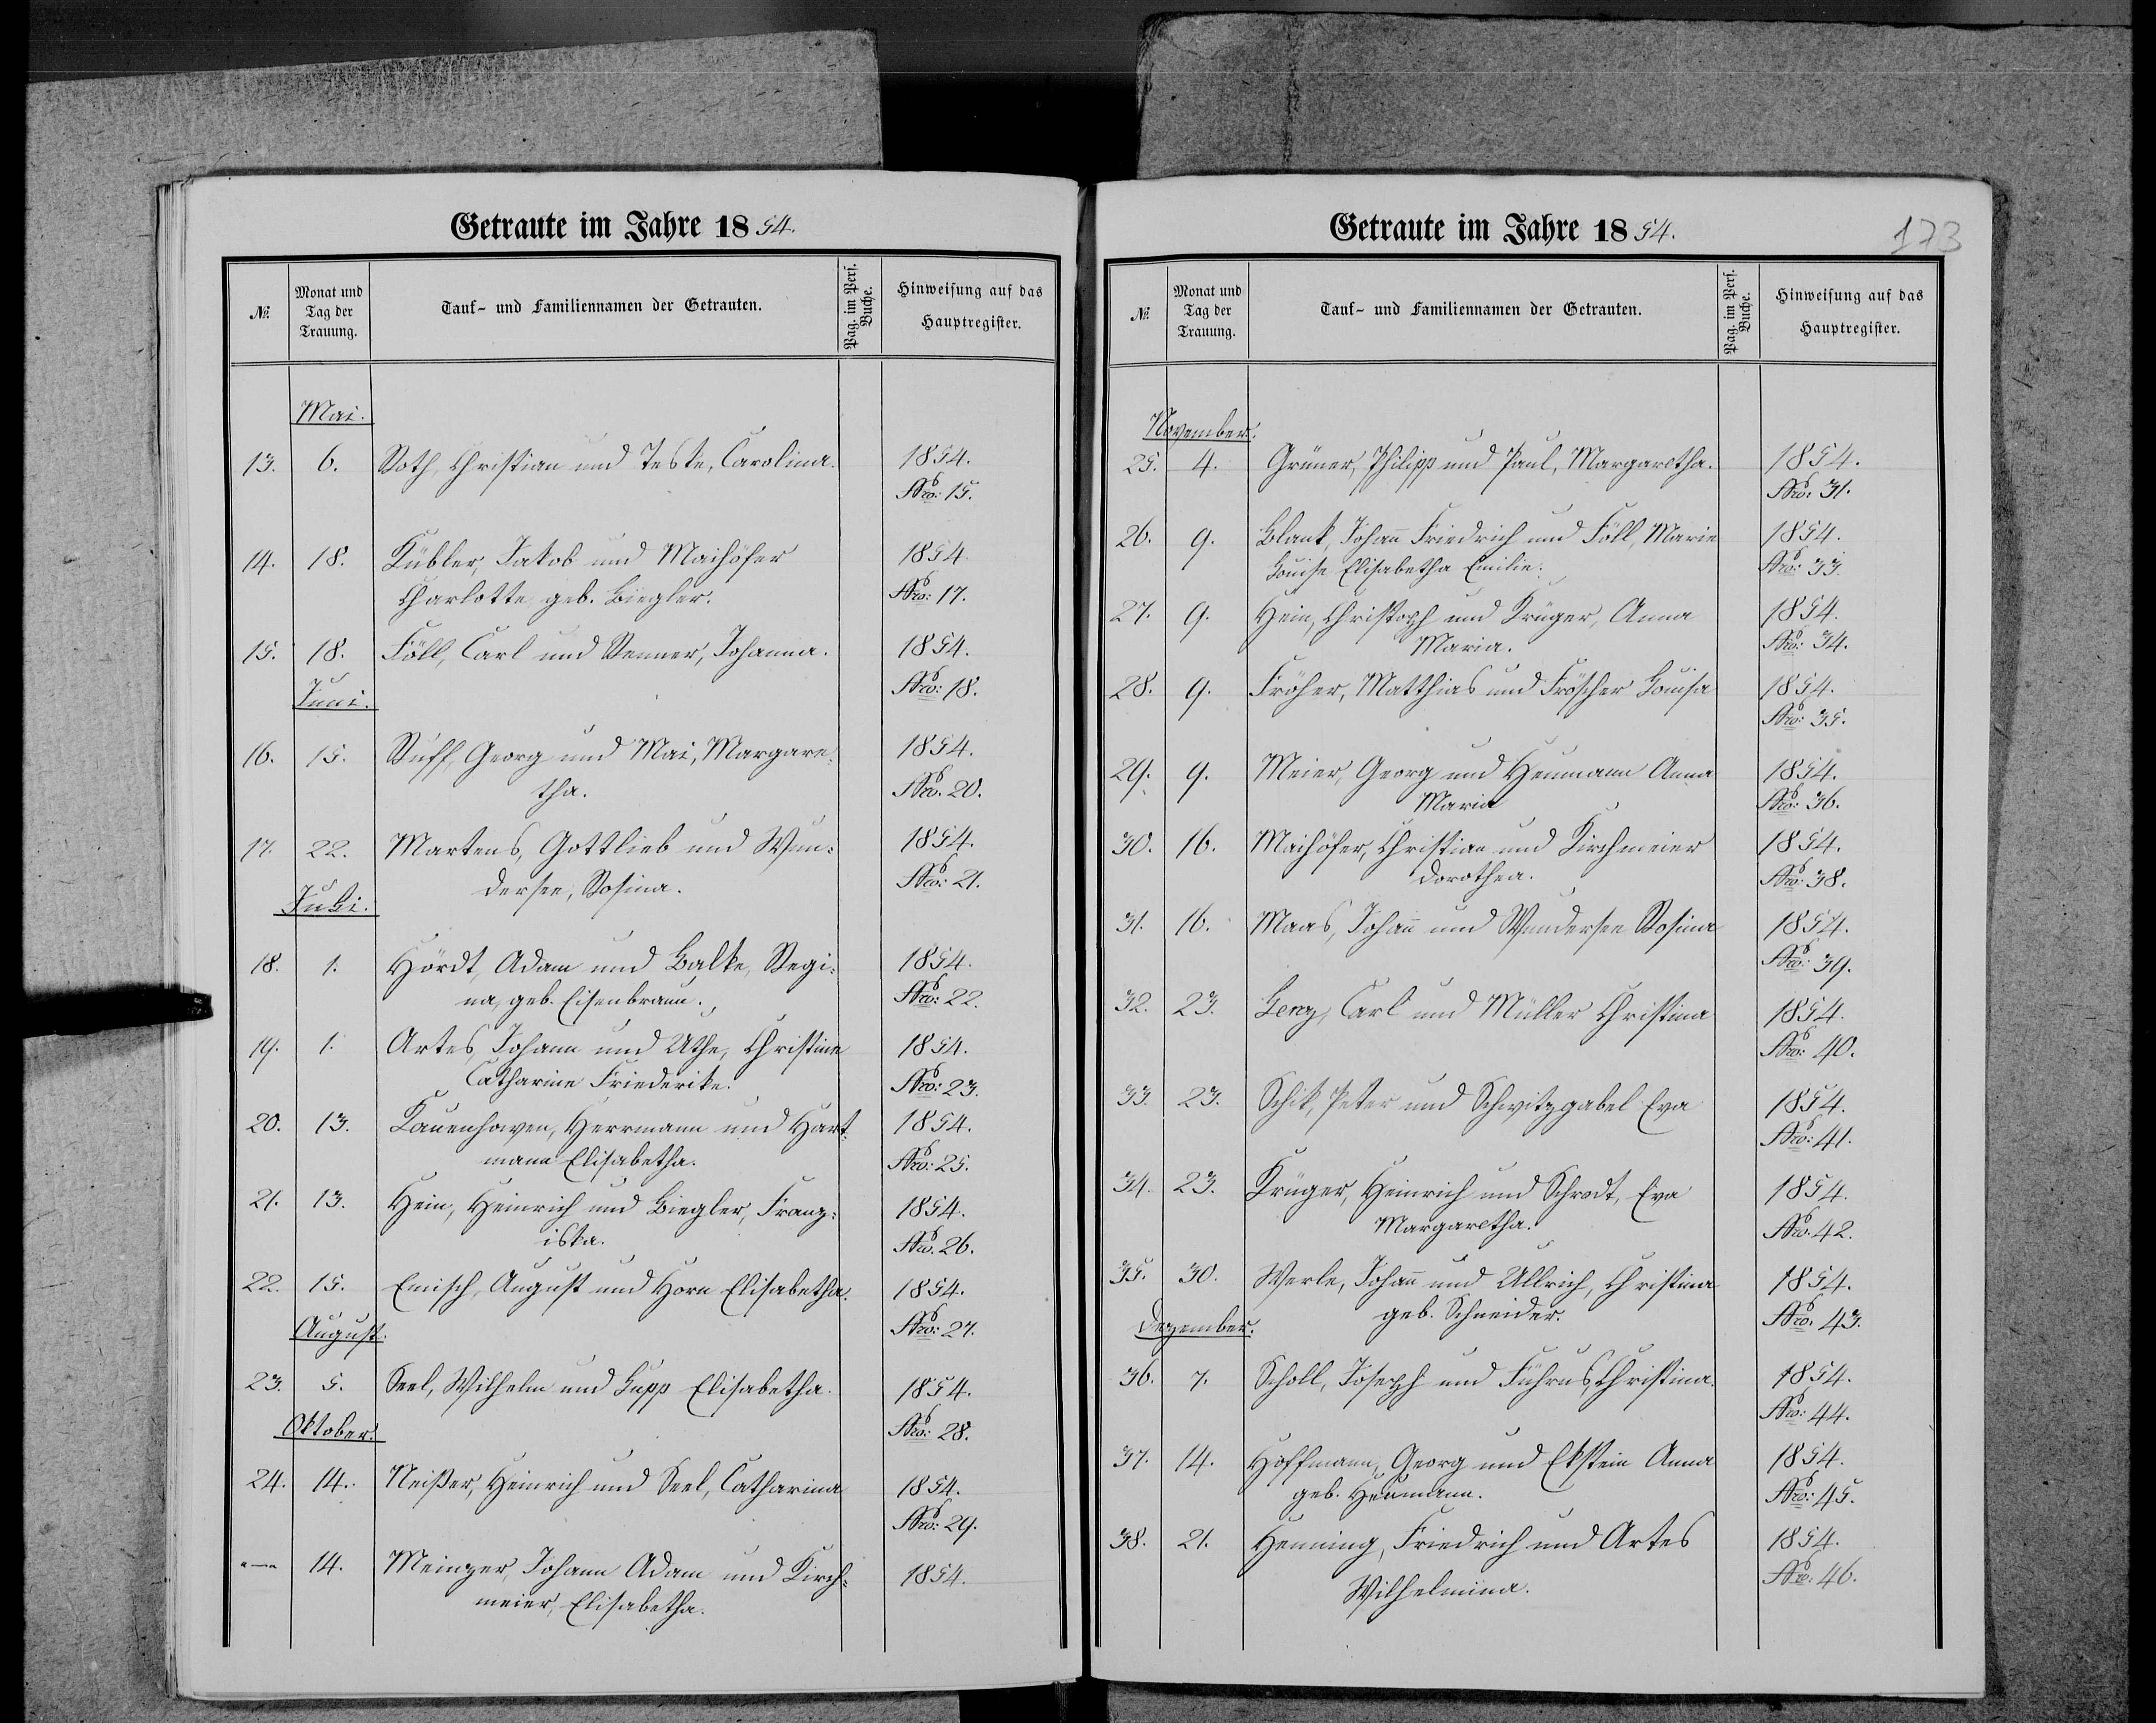 Getraute im Jahre 1854.
№. Monat und Tag der Trauung. Tauf- und Familiennamen der Getrauten. Pag. im Pers. Buche. Hinweisung auf das Hauptregister.
Mai.
13. 6. Roth, Christian und Teske, Carolina. 1854.
Nro: 15.
14. 18. Kübler, Jakob und Maihöfer 1854.
Charlotte geb. Biegler. Nro: 17.
15. 18. Föll, Carl und Renner, Johanna. 1854.
Juni. Nro: 18.
16. 15. Ruff, Georg und Mai, Margare- 1854.
tha. Nro. 20.
17. 22. Martens, Gottlieb und Wun- 1854.
dersee, Rosina. Nro: 21.
Juli.
18. 1. Hördt, Adam und Balke, Regi- 1854.
na, geb. Eisenbraun. Nro: 22.
19. 1. Artes, Johann und Uthe, Christine 1854.
Catharine Friederike. Nro: 23.
20. 13. Kauenhowen, Herrmann und Hart- 1854.
mann Elisabetha. Nro: 25.
21. 13. Hein, Heinrich und Biegler, Franz- 1854.
iska. Nro. 26.
22. 15. Emisch, August und Horn Elisabetha. 1854.
August. Nro: 27.
23. 5. Seel, Wilhelm und Hupp Elisabetha. 1854.
Oktober. Nro: 28.
24. 14. Neißer, Heinrich und Seel, Catharina 1854.
Nro: 29.
"—" 14. Meinzer, Johann Adam und Kirch- 1854.
meier, Elisabetha.
Getraute im Jahre 1854.
173
№. Monat und Tag der Trauung. Tauf- und Familiennamen der Getrauten. Pag. im Pers. Buche. Hinweisung auf das Hauptregister.
November.
25. 4. Grüner, Philipp und Paul, Margaretha. 1854.
Nro: 31.
26. 9. Blank, Johañ Friedrich und Föll, Marie 1854.
Louise Elisabetha Emilie. Nro: 33.
27. 9. Hein, Christoph und Krüger, Anna 1854.
Maria. Nro: 34.
28. 9. Fröher, Matthias und Fröscher Louisa 1854.
Nro: 35.
29. 9. Meier, Georg und Heumann Anna 1854.
Maria Nro: 36.
30. 16. Maihöfer, Christian und Kirchmeier 1854.
Dorothea. Nro: 38.
31. 16. Maas, Johañ und Wundersee Rosina 1854.
Nro: 39.
32. 23. Lenz, Carl und Müller Christina 1854.
Nro: 40.
33. 23. Schik, Peter und Schwitzgabel Eva 1854.
Nro: 41.
34. 23. Krüger, Heinrich und Schrodt, Eva 1854.
Margaretha. Nro. 42.
35. 30. Werle, Johañ und Ullrich, Christina 1854.
geb. Schneider. Nro. 43.
Dezember.
36. 7. Scholl, Joseph und Führus, Christina. 1854.
Nro: 44.
37. 14. Hoffmann, Georg und Ekstein Anna 1854.
geb. Heumann. Nro: 45.
38. 21. Henning, Friedrich und Artes 1854.
Wilhelmina. Nro: 46.